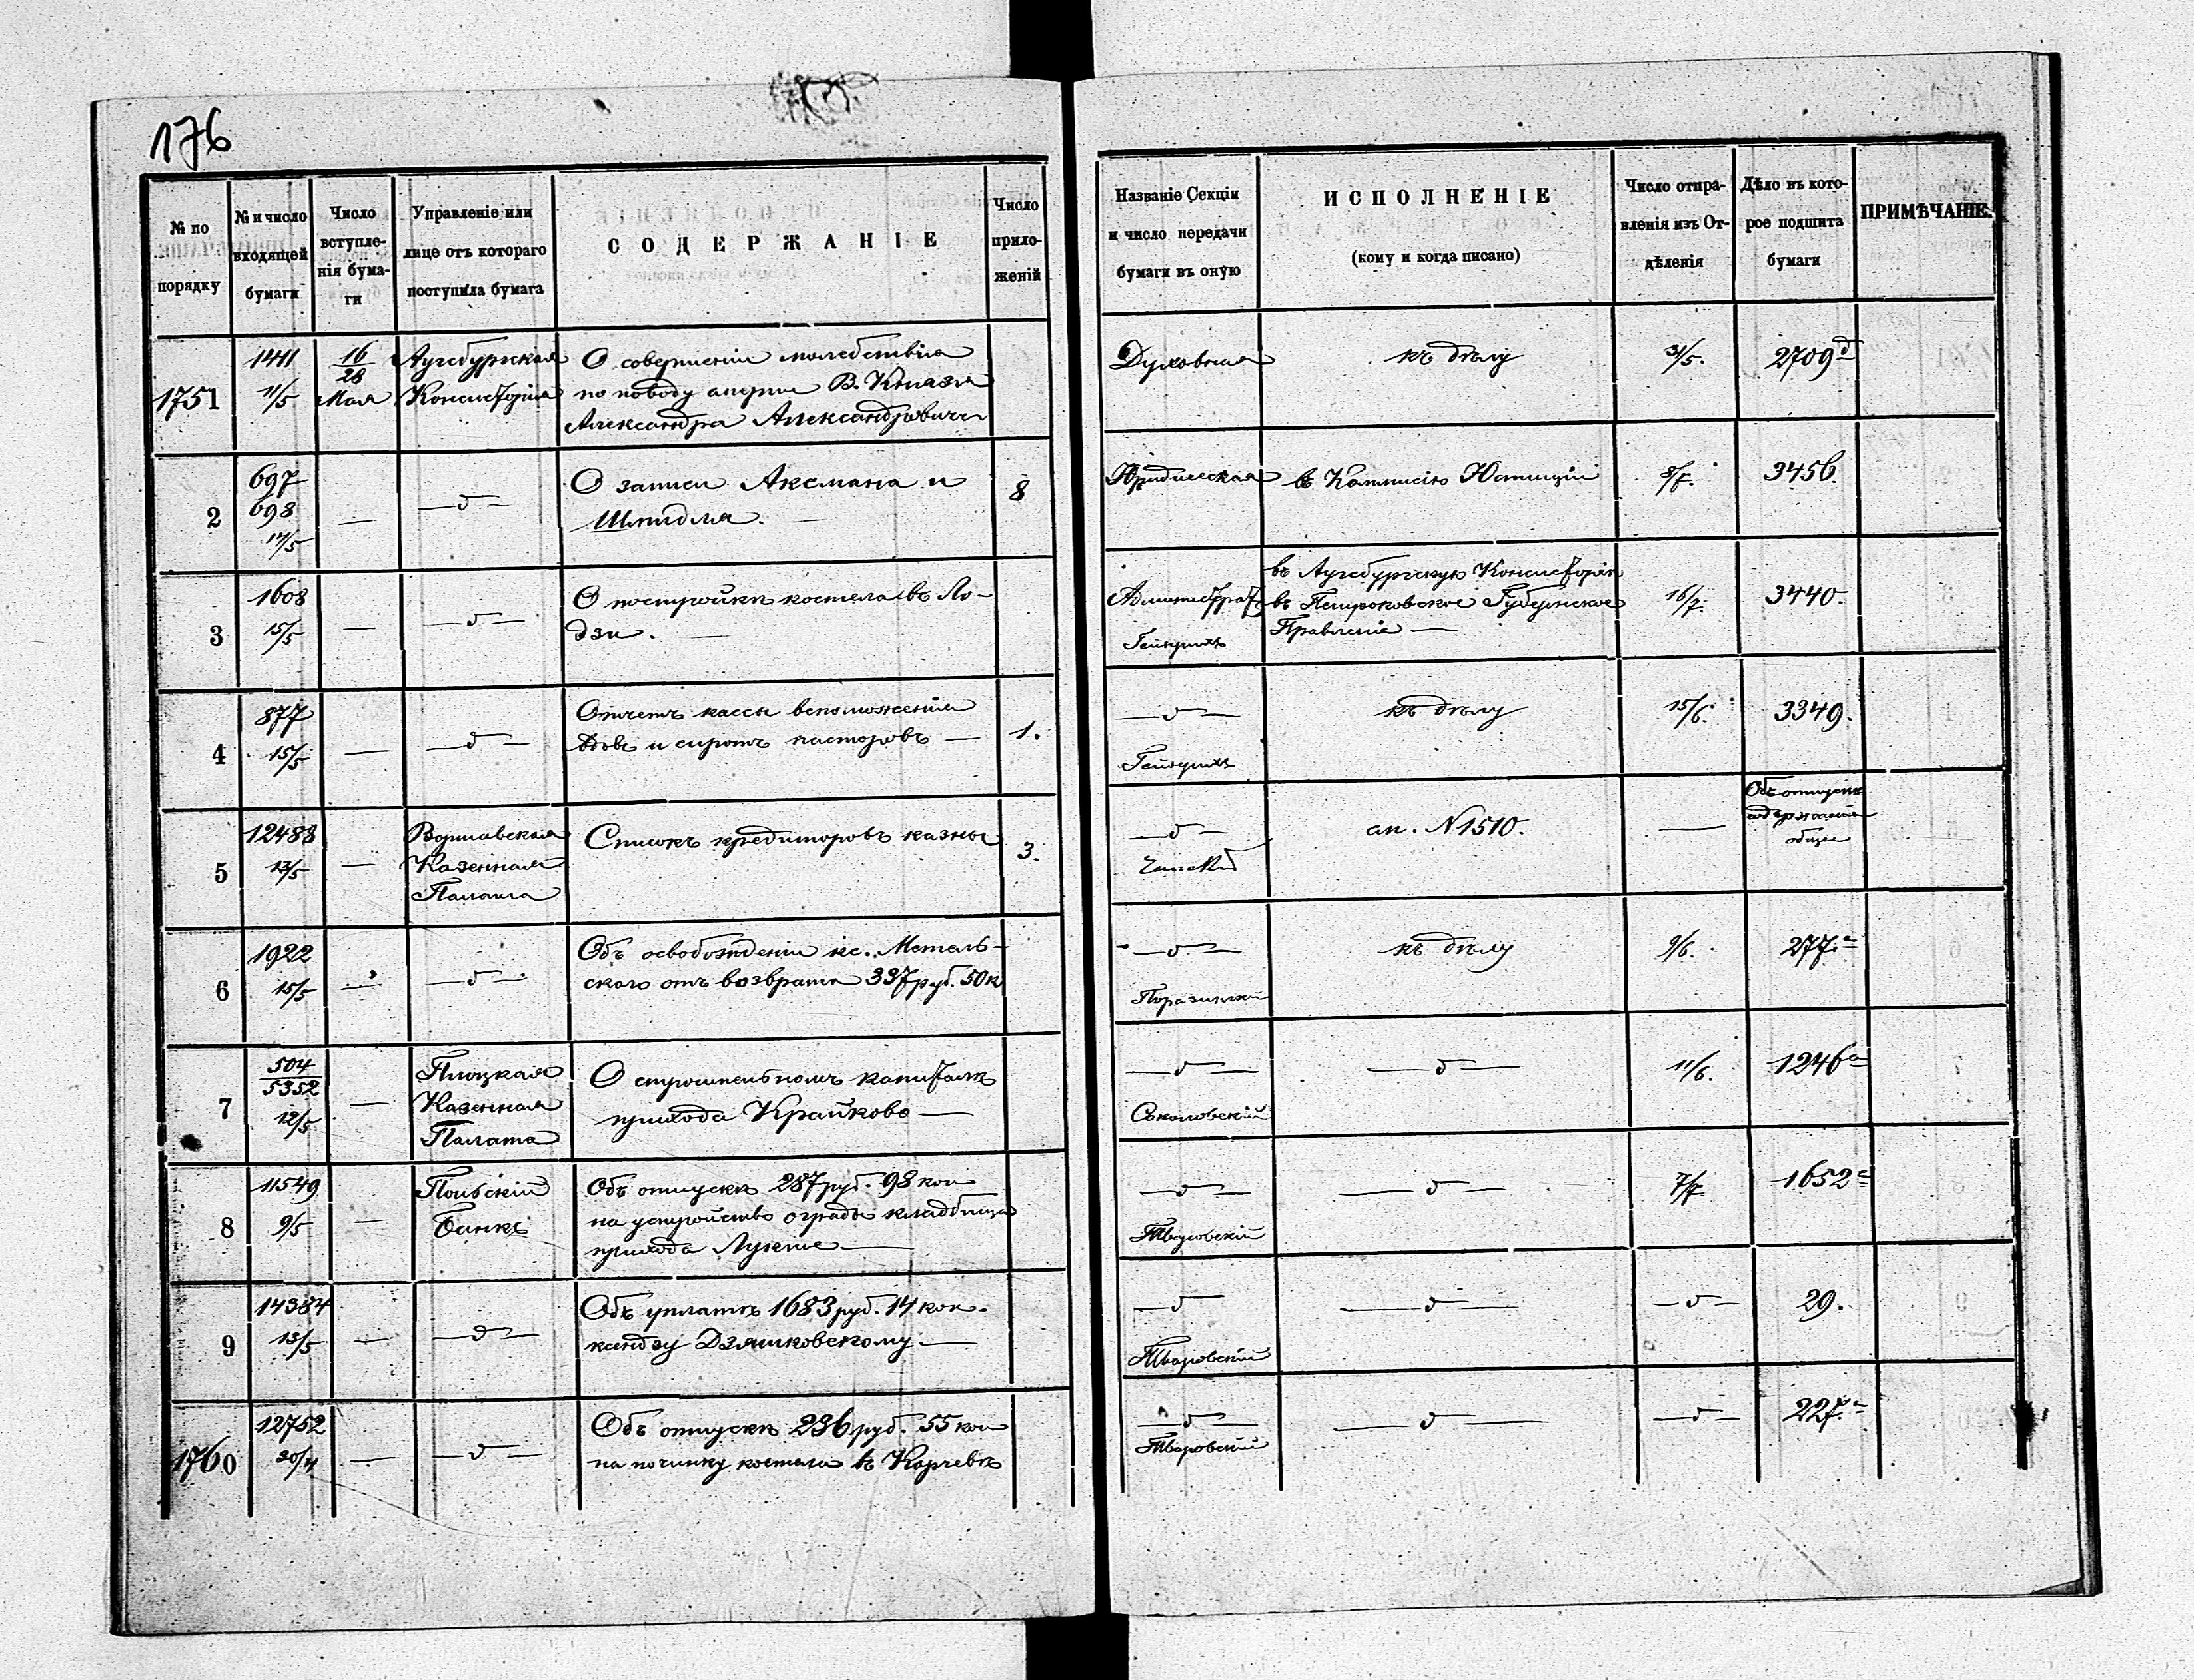 176
№ по порядку
№ и число входящей бумаги
Число вступле-нія бума-ги
Управленіе или лице отъ котораго поступила бумага
СОДЕРЖАНІЕ
Число прило-женій
Названіе Секціи и число передачи бумаги въ оную
ИСПОЛНЕНІЕ
(кому и когда писано)
Число отпра-вленія изъ От-дѣленія
Дѣло въ кото-рое подшита бумаги
ПРИМѢЧАНІЕ.
1751
1411
11/5
16/28
Мая
Аугсбургская
Консисторія
О совершеніи молебствія
по поводу смерти В. Князя
Александра Александровича
Духовная
къ дѣлу
31/5.
2709 д
2
697/698
14/5
—
—д—
О записи Аксмана и
Шмидта. —
8
Юридическая
въ Коммисію Юстиціи
8/7.
3456.
3
1608
15/5
—
—д—
О постройкѣ костела въ Ло-
дзи. —
Администрат.
Гейнрихъ
въ Аугсбургскую Консисторію
въ Петроковское Губернское
Правленіе —
16/7.
3440.
4
877
15/5
—
—д—
Отчетъ кассы вспоможенія
вдовъ и сиротъ пасторовъ —
1.
—д—
Гейнрихъ
къ дѣлу
15/6.
3349.
5
12488
13/5
—
Варшавская
Казенная
Палата
Списокъ кредиторовъ казны
3.
—д—
ап. N 1510.
—
Объ отпускѣ
содержанія
общее
6
1922
15/5
—
—д—
Объ освобожденіи кс. Метель-
скаго отъ возврата 337 руб. 50 к
—д—
къ дѣлу
9/6.
277. а
7
504/5352
12/5
—
Плоцкая
Казенная
Палата
О строительномъ капиталѣ
прихода Крайково —
—д—
Соколовскій
—д—
11/6.
1246 а
8
11549
9/5
—
Польскій
Банкъ
Объ отпускѣ 287 руб. 98 коп
на устройство ограды кладбища
прихода Лукше —
—д—
Тваровскій
—д—
7/7.
1652 а
9
14384
13/5
—
—д—
Объ уплатѣ 1683 руб. 14 коп.
ксендзу Дзяшковскому —
—д—
Тваровскій
—д—
—д—
29.
1760
12752
30/4
—
—д—
Объ отпускѣ 236 руб. 55 коп
на починку костела въ Карчевѣ
—д—
Тваровскій
—д—
—д—
227. а